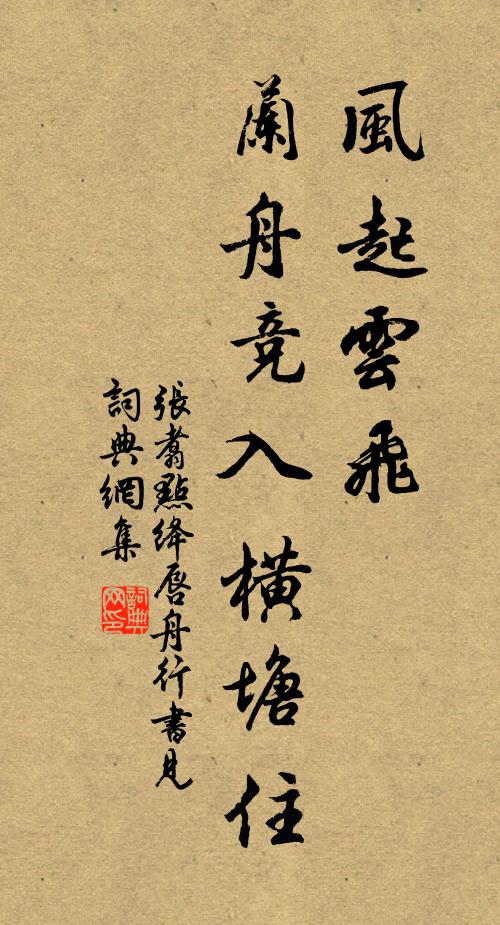 風起雲飛
蘭舟競入橫塘住
張翥點絳唇舟行書見
詞典網集
詞典
网印